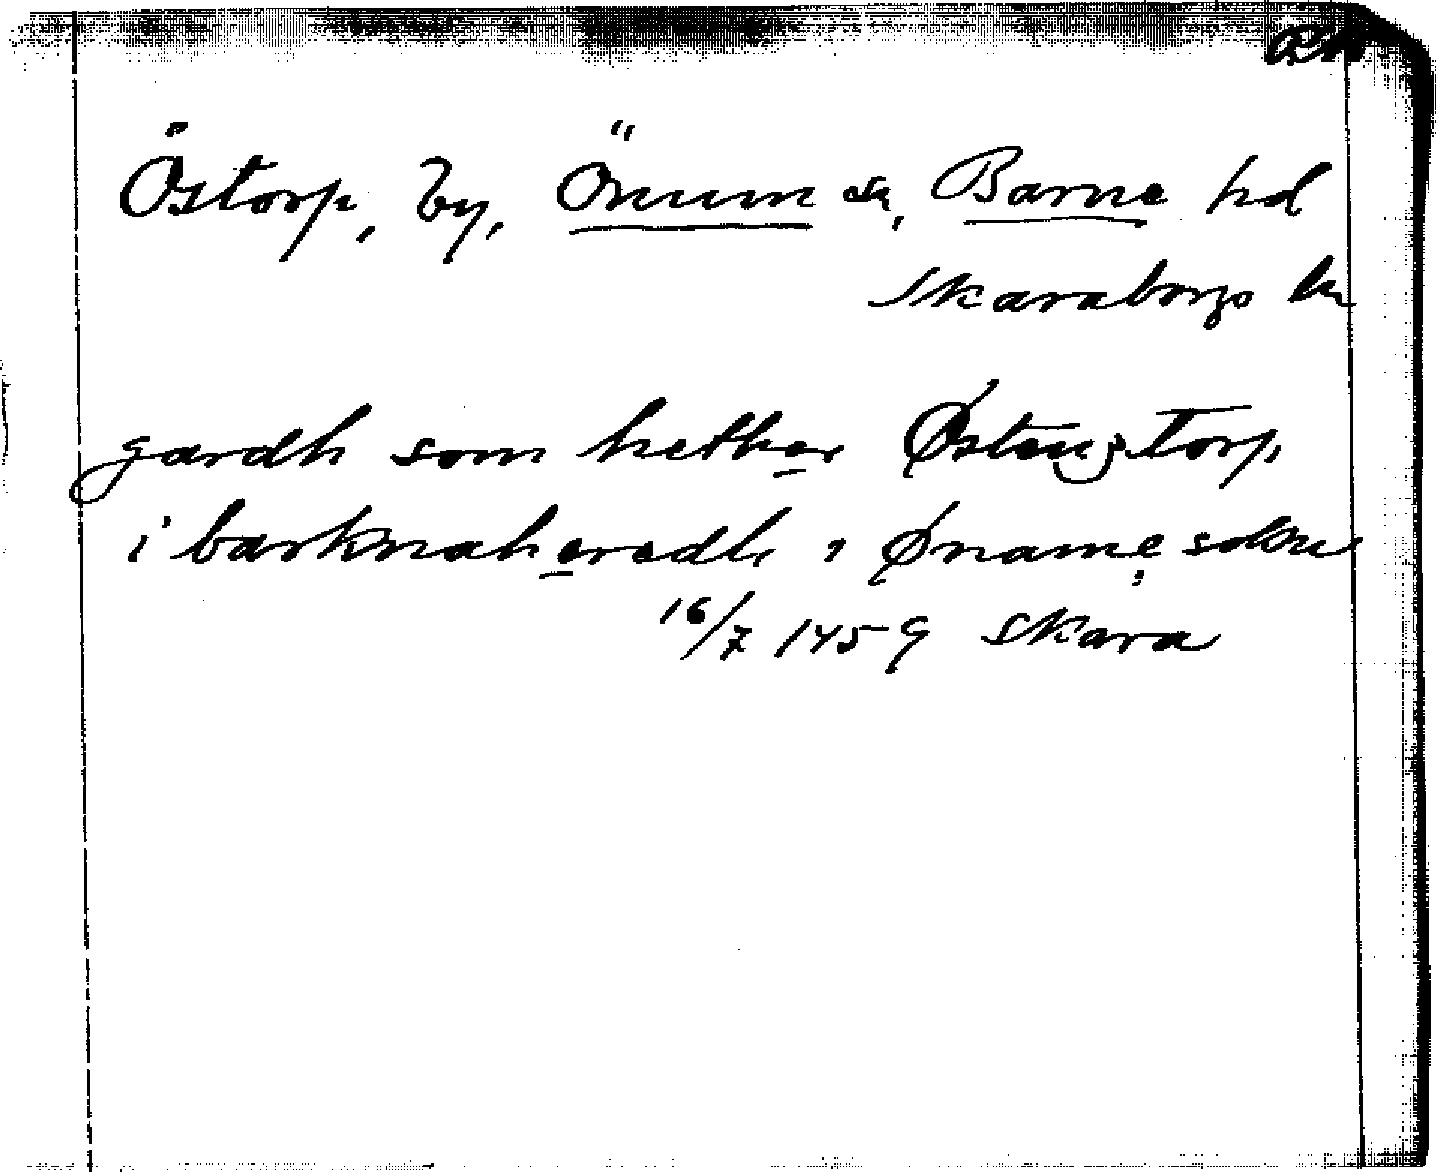 Östorp, by, Önum sn, Barne hd
Skaraborgs ln
gardh som hether Østenstorp
i barknaheredh i Øname sokn
16/7 1459 Skara